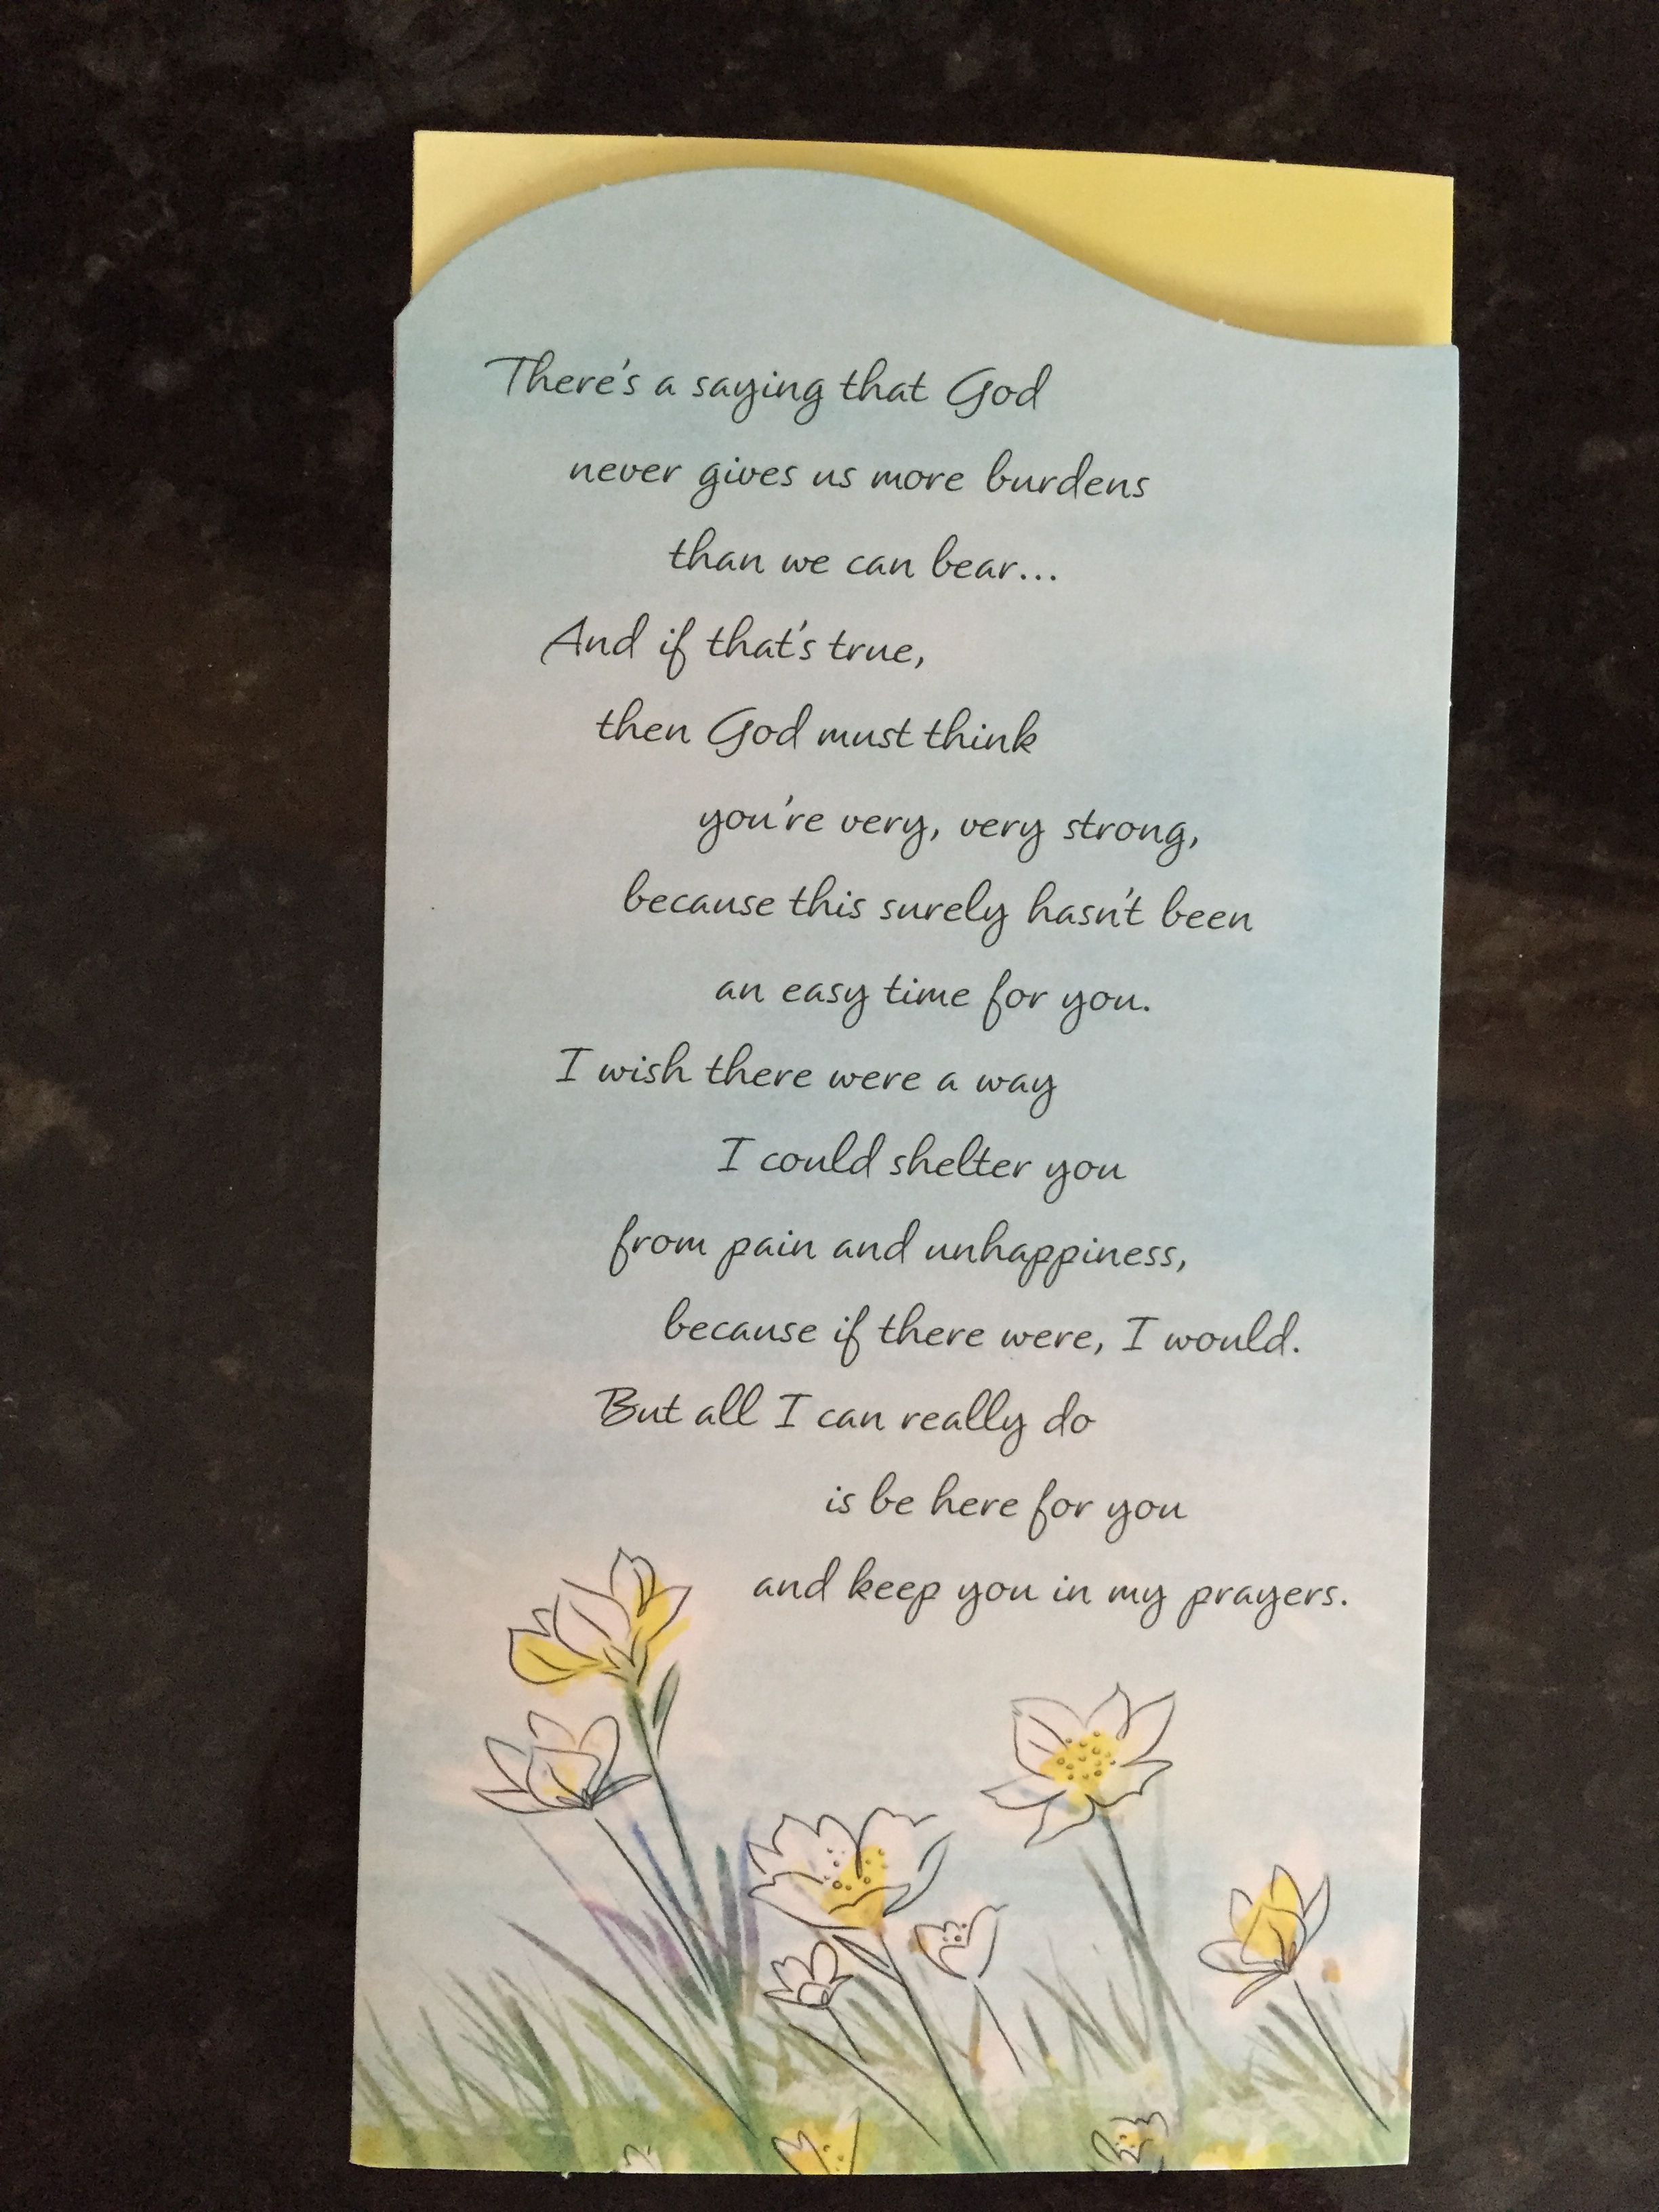 There's a saying that God
never gives us more burdens
than we can bear...
And if that's true,
then God must think
you're very, very strong,
because this surely hasn't been
an easy time for you.
I wish there were a way
I could shelter you
from pain and unhappiness,
because if there were, I would.
But all I can really do
is be here for you
and keep you in my prayers.